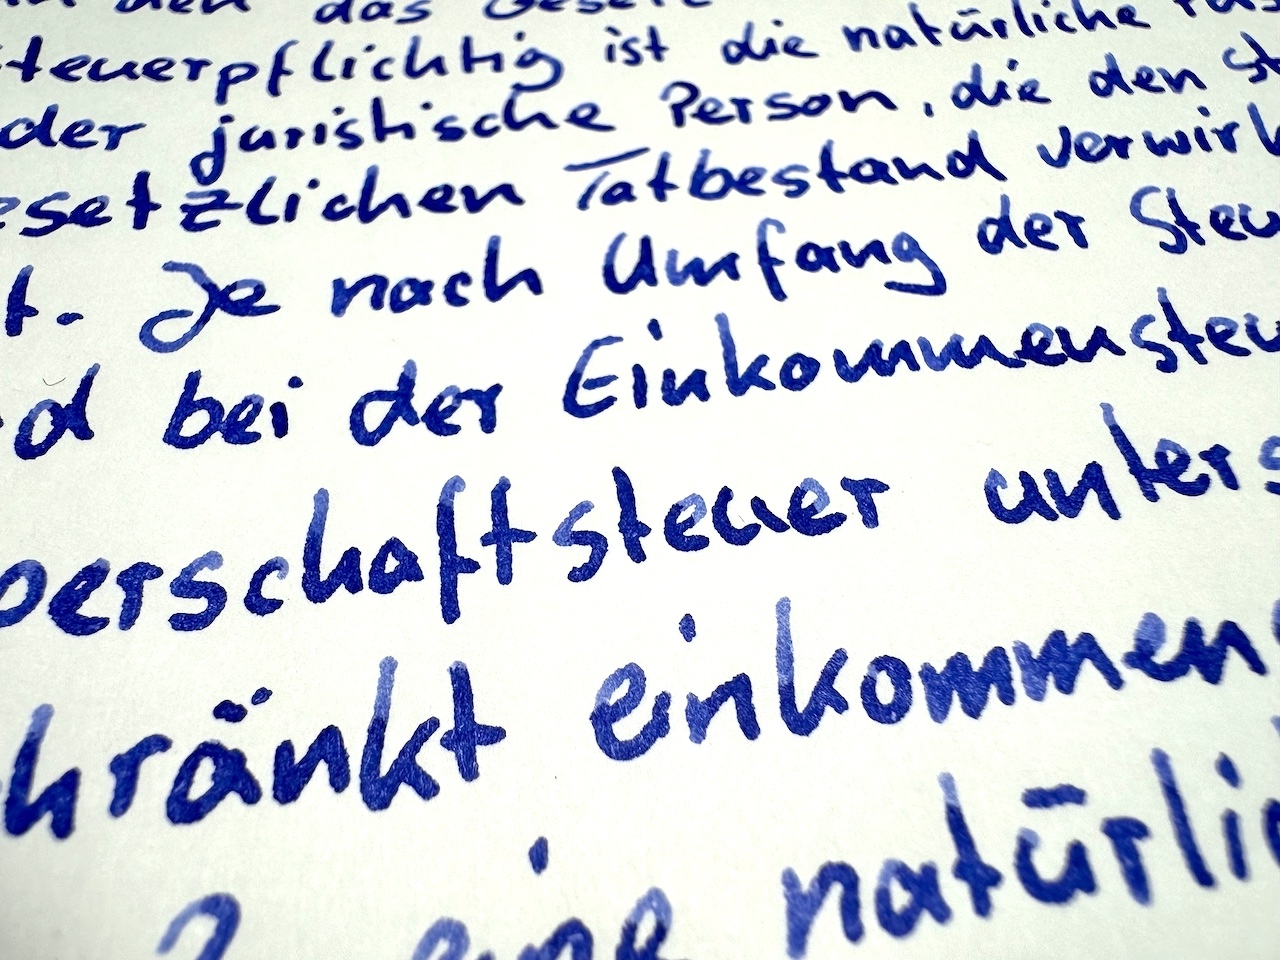 den das Gesetz
steuerpflichtig ist die natürliche
oder juristische Person, die den St
esetzlichen Tatbestand verwirk
t. Je nach Umfang der Steu
d bei der Einkommensteu
perschaftsteuer unters
hränkt einkommens
eine natürlic